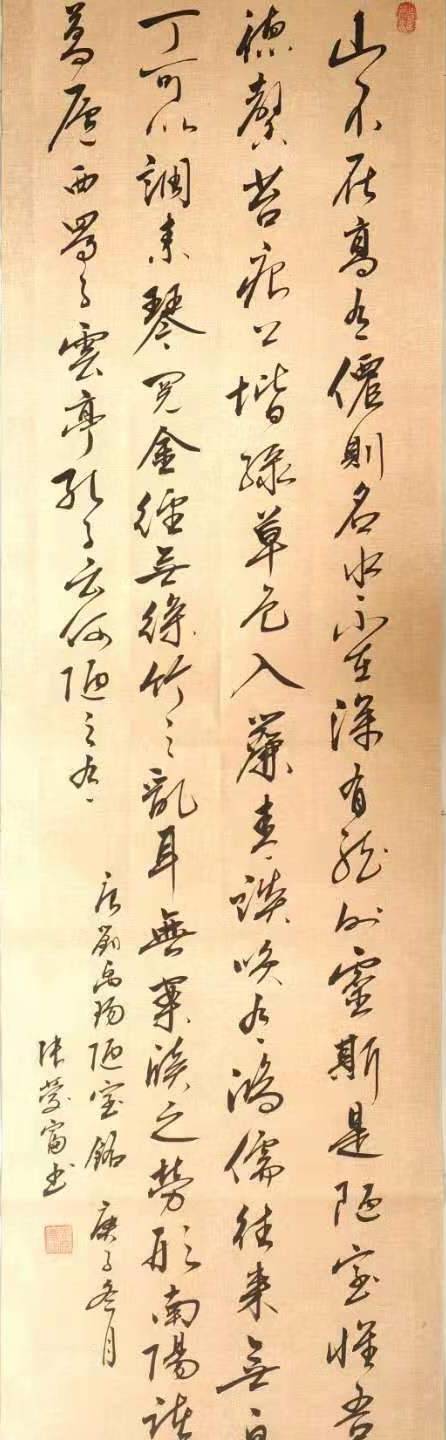 山不在高有僊則名水不在深有龍則靈斯是陋室惟吾
德馨苔痕上堦綠草色入簾青談唉有鴻儒往来無白
丁可以調素琴閲金經無絲竹之亂耳無案牘之勞形南陽諸
葛廬西蜀子雲亭孔子云何陋之有
唐劉禹錫陋室銘 庚子冬月
張慶富书